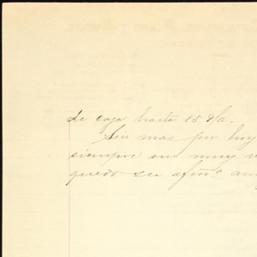 de caja hasta 15 d/a.
Sin mas por hoy
siempre su muy
quedo su afmo am